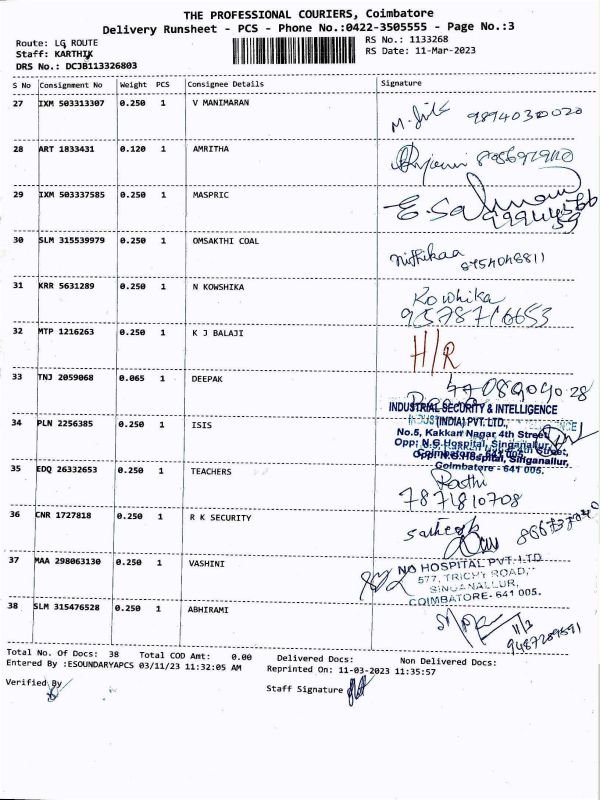 THE PROFESSIONAL COURIERS, Coimbatore
Delivery Runsheet - PCS - Phone No.:0422-3505555 - Page No.:3
Route: LG ROUTE
Staff: KARTHIK
DRS No.: DCJB113326803
RS No.: 1133268
RS Date: 11-Mar-2023
S No Consignment No Weight PCS Consignee Details Signature
27 IXM 503313307 0.250 1 V MANIMARAN
28 ART 1833431 0.120 1 AMRITHA
29 IXM 503337585 0.250 1 MASPRIC E.Salmom
30 SLM 315539979 0.250 1 OMSAKTHI COAL Nithikaa
8754048811
31 KRR 5631289 0.250 1 N KOWSHIKA Kowhika
9578716653
32 MTP 1216263 0.250 1 K J BALAJI H/R
33 TNJ 2059068 0.065 1 DEEPAK
INDUSTRIAL SECURITY & INTELLIGENCE
(INDIA) PVT. LTD.,
34 PLN 2256385 0.250 1 ISIS
No.5, Kakkan Nagar 4th Street,
Opp: N.G.Hospital, Singanallur,
Coimbatore - 641 005.
35 EDQ 26332653 0.250 1 TEACHERS Rasthi
7871810708
36 CNR 1727818 0.250 1 R K SECURITY
37 MAA 298063130 0.250 1 VASHINI
HOSPITAL PVT. LTD
577, TRICHY ROAD,
SINGANALLUR,
COIMBATORE- 641 005.
38 SLM 315476528 0.250 1 ABHIRAMI
9487289591
Total No. Of Docs: 38 Total COD Amt: 0.00 Delivered Docs: Non Delivered Docs:
Entered By :ESOUNDARYAPCS 03/11/23 11:32:05 AM Reprinted On: 11-03-2023 11:35:57
Verified By Staff Signature